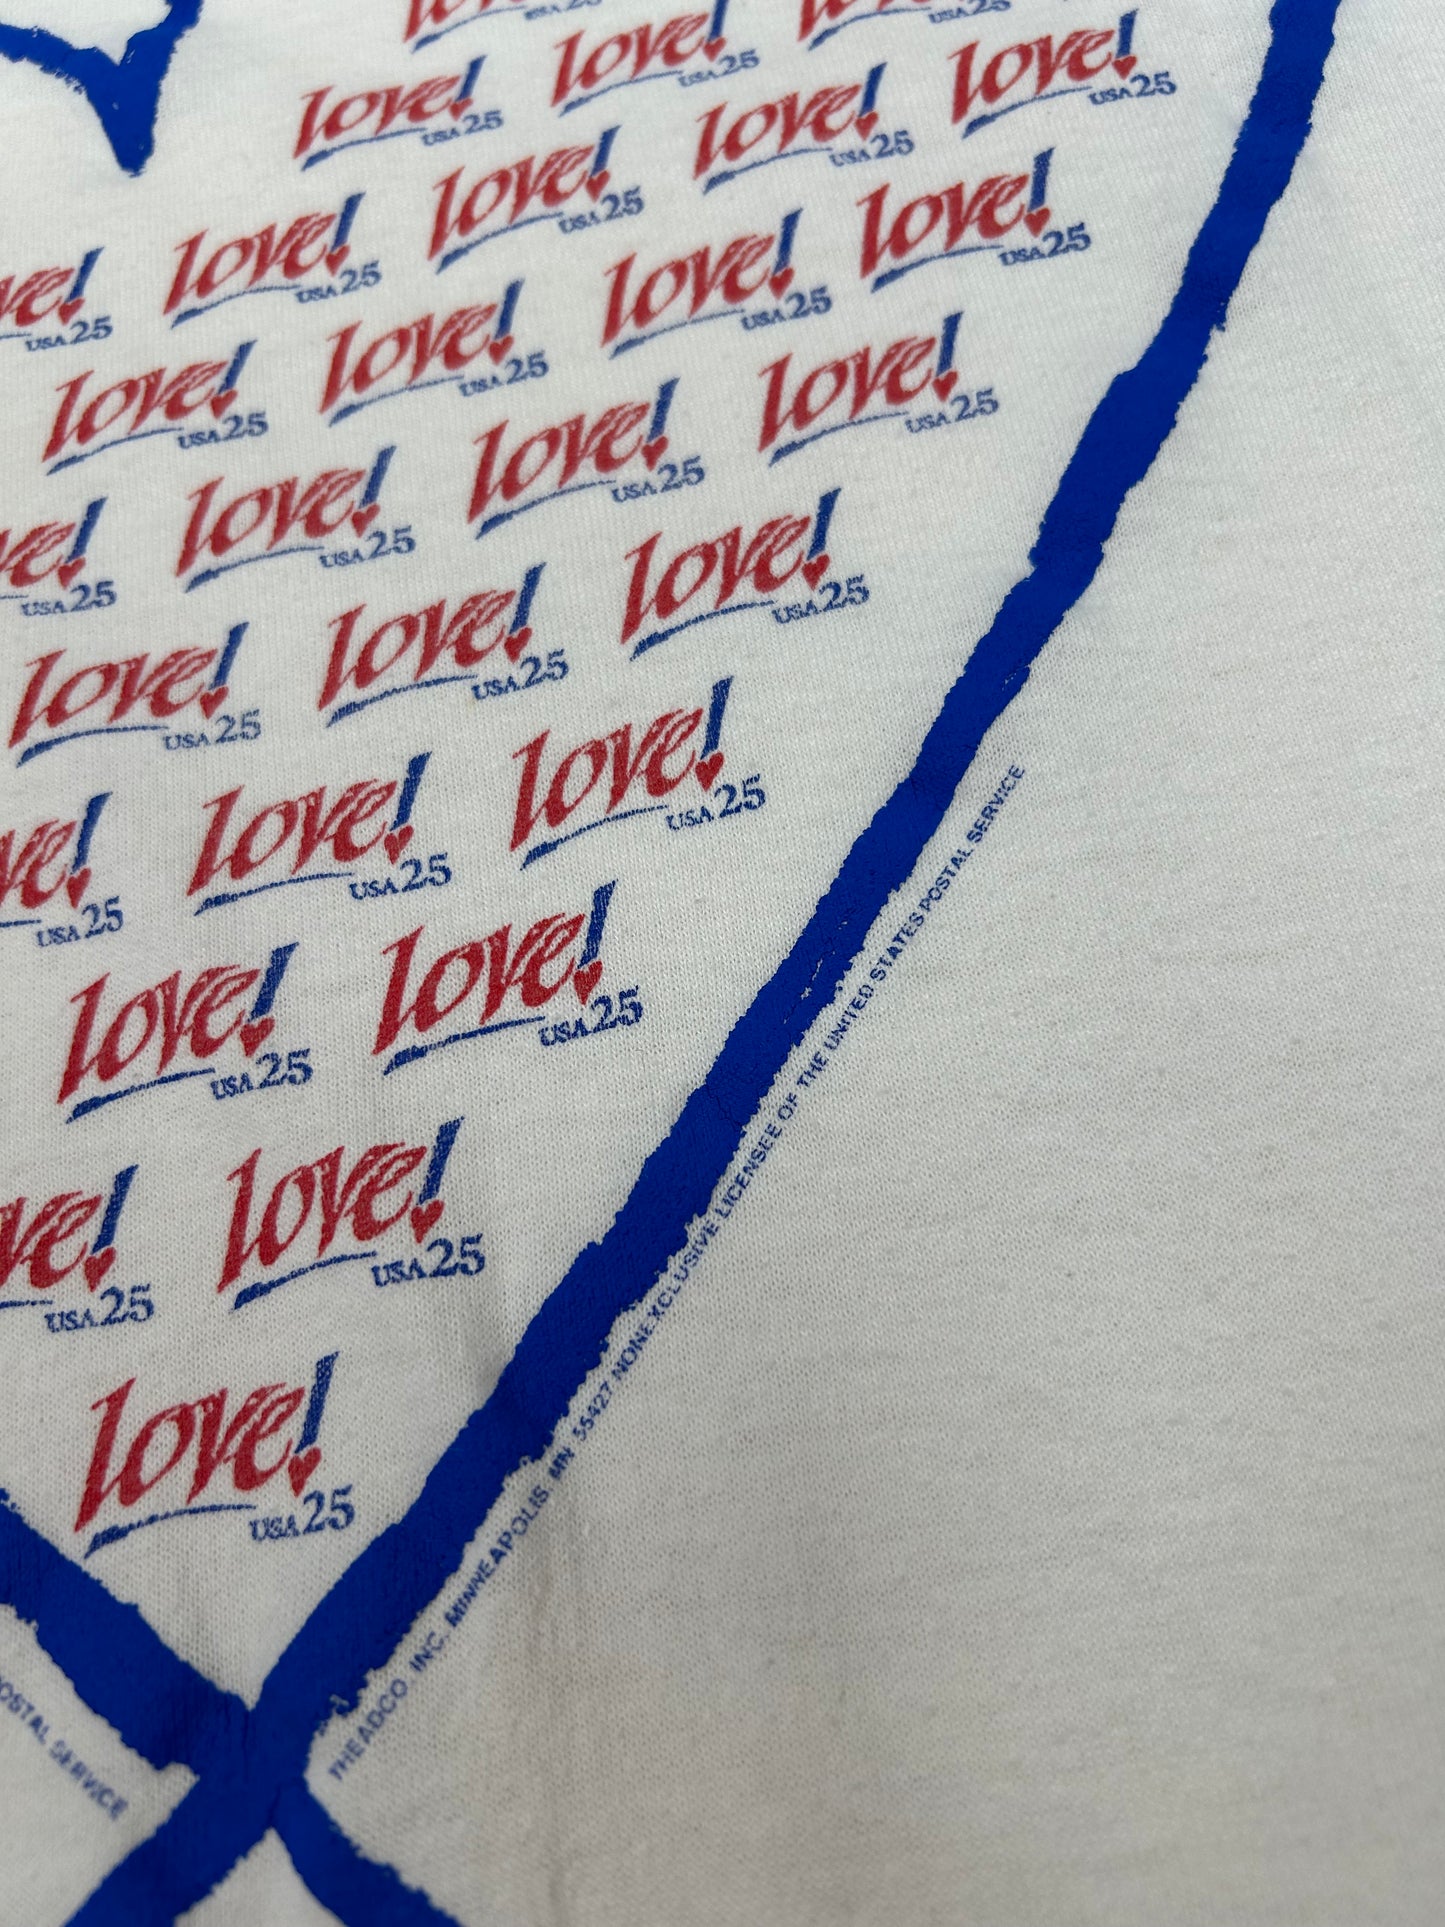 love! USA 25
love! USA 25
love! USA 25
love! USA 25
love! USA 25
love! USA 25
love! USA 25
love! USA 25
ve! USA 25
love! USA 25
love! USA 25
love! USA 25
love! USA 25
love! USA 25
ve! USA 25
love! USA 25
love! USA 25
love! USA 25
love! USA 25
love! USA 25
ve! USA 25
love! USA 25
love! USA 25
love! USA 25
love! USA 25
ve! USA 25
love! USA 25
love! USA 25
THEADCO, INC. MINNEAPOLIS, MN 55427 NONEXCLUSIVE LICENSEE OF THE UNITED STATES POSTAL SERVICE
OSTAL SERVICE